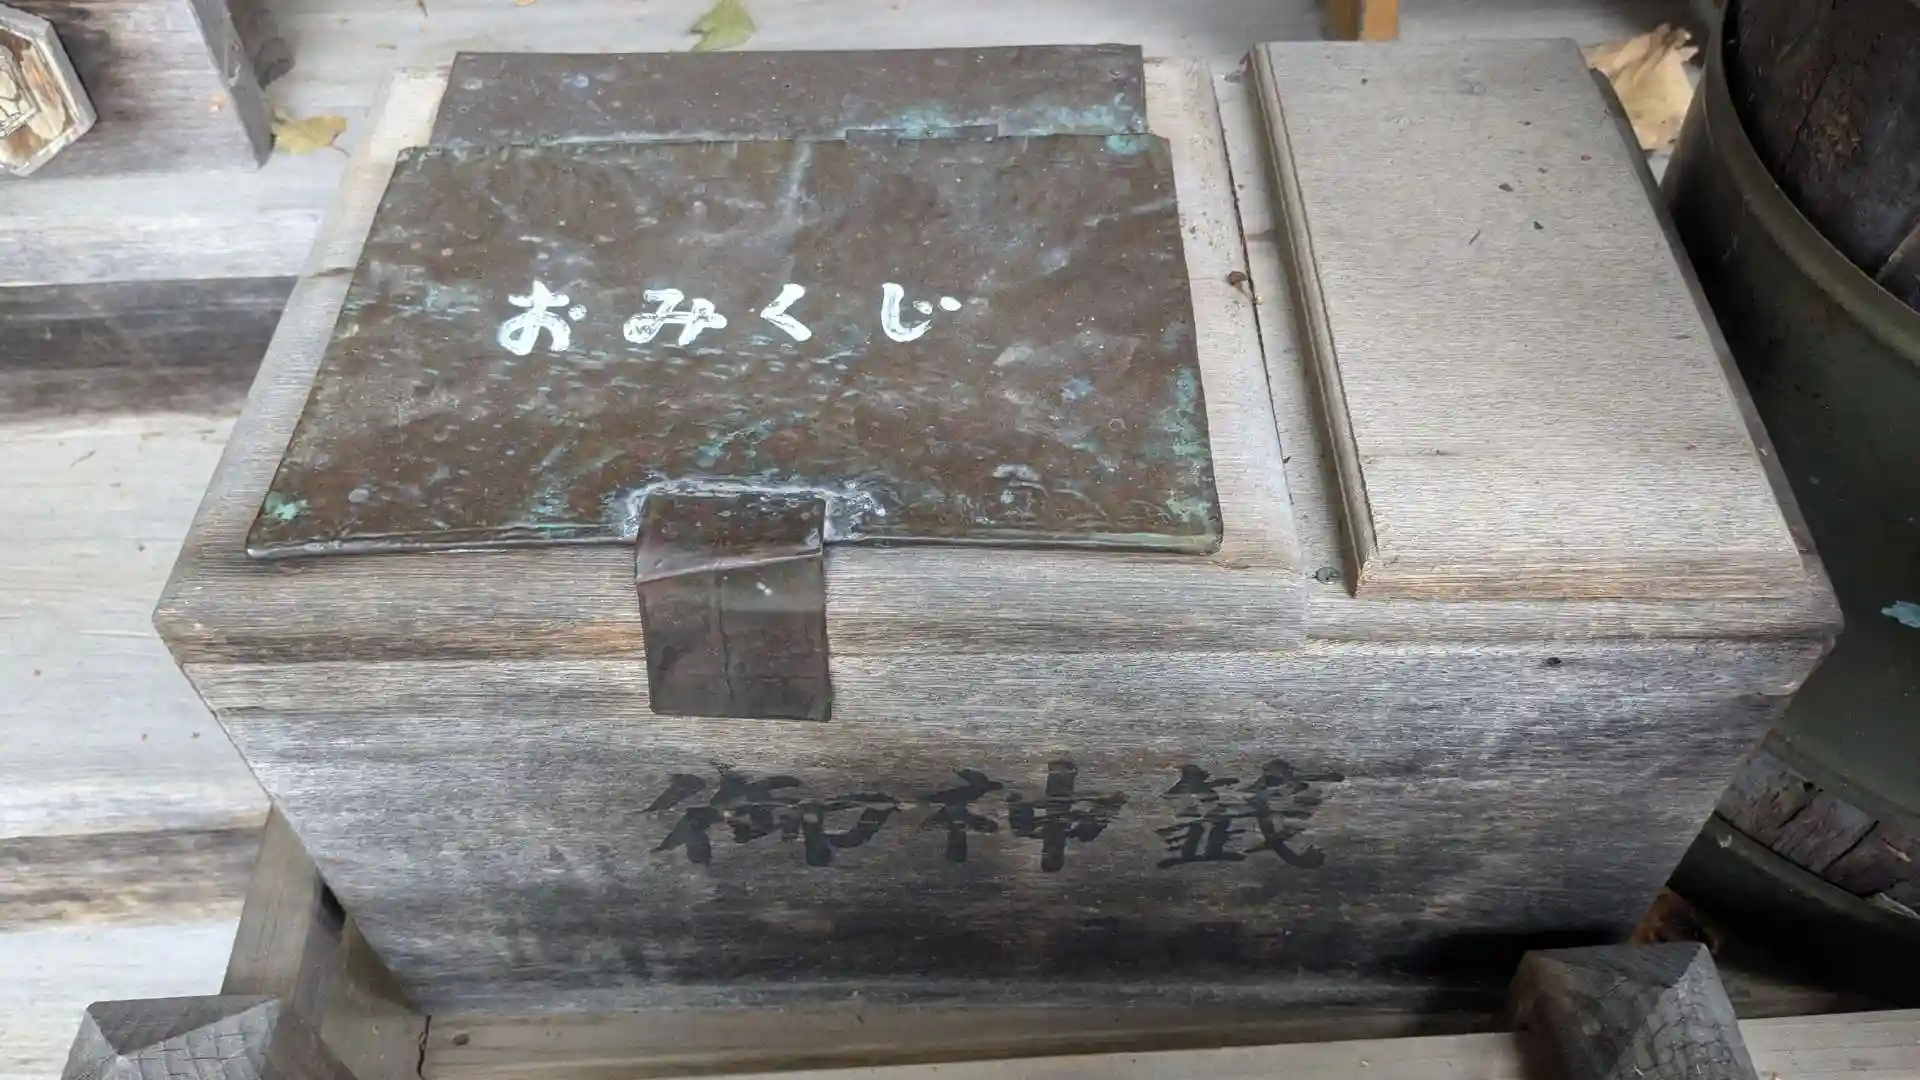 おみくじ
御神籤